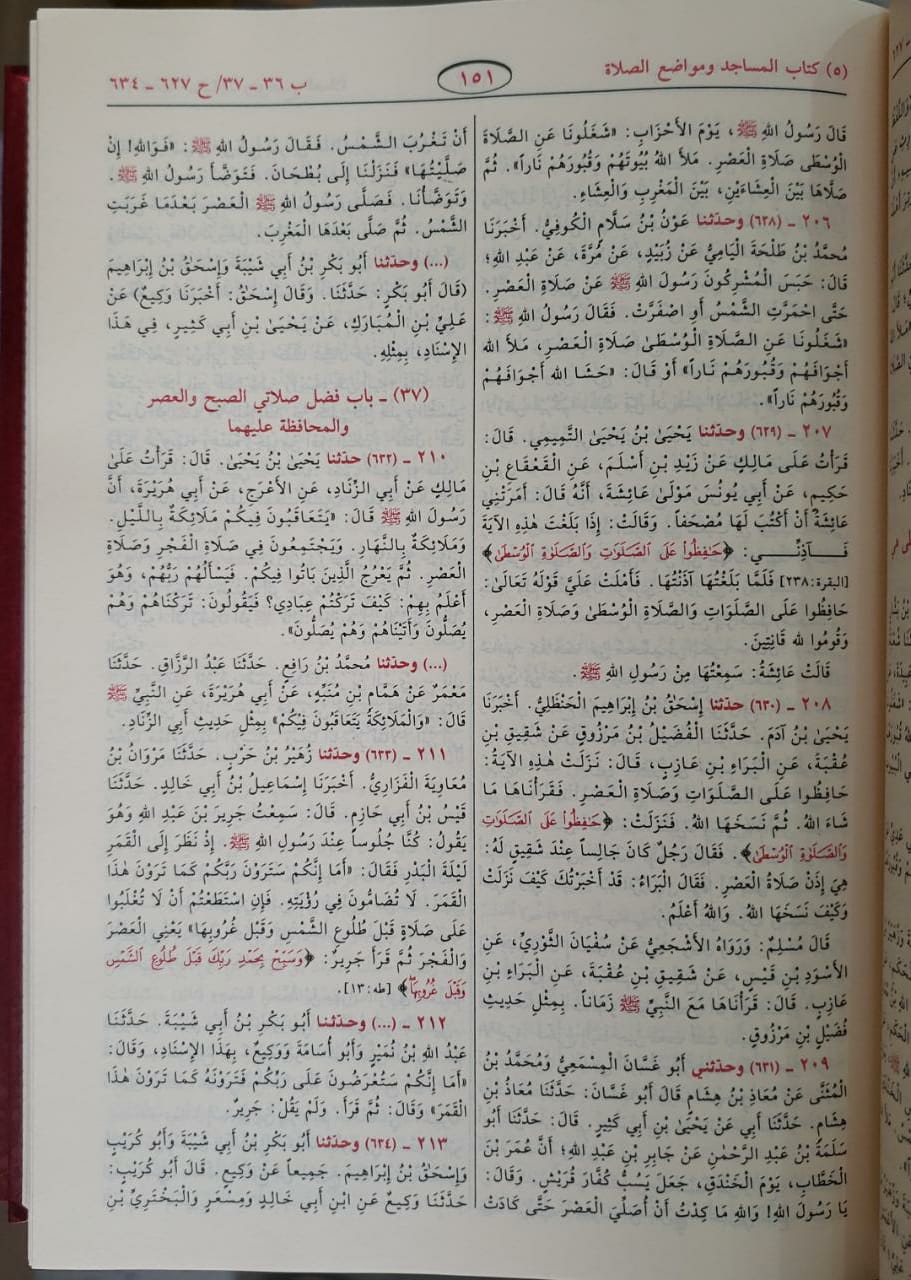 (٥) كتاب المساجد ومواضع الصلاة
١٥١
ب ٣٦ ـ ٣٧/ ح ٦٢٧ ـ ٦٣٤
قَالَ رَسُولُ اللهِ ﷺ، يَوْمَ الْأَحْزَابِ: «شَغَلُونَا عَنِ الصَّلَاةِ
الْوُسْطَى صَلَاةِ الْعَصْرِ. مَلَأَ اللهُ بُيُوتَهُمْ وَقُبُورَهُمْ نَاراً». ثُمَّ
صَلَّاهَا بَيْنَ الْعِشَاءَيْنِ، بَيْنَ الْمَغْرِبِ وَالْعِشَاءِ.
٢٠٦ ـ (٦٢٨) وحدّثنا عَوْنُ بْنُ سَلَّامٍ الْكُوفِيُّ. أَخْبَرَنَا
مُحَمَّدُ بْنُ طَلْحَةَ الْيَامِيُّ عَنْ زُبَيْدٍ، عَنْ مُرَّةَ، عَنْ عَبْدِ اللهِ؛
قَالَ: حَبَسَ الْمُشْرِكُونَ رَسُولَ اللهِ ﷺ عَنْ صَلَاةِ الْعَصْرِ.
حَتَّى احْمَرَّتِ الشَّمْسُ أَوِ اصْفَرَّتْ. فَقَالَ رَسُولُ اللهِ ﷺ:
«شَغَلُونَا عَنِ الصَّلَاةِ الْوُسْطَىٰ صَلَاةِ الْعَصْرِ، مَلَأَ الله
أَجْوَافَهُمْ وَقُبُورَهُمْ نَاراً» أَوْ قَالَ: «حَشَا الله أَجْوَافَهُمْ
وَقُبُورَهُمْ نَاراً».
٢٠٧ ـ (٦٢٩) وحدّثنا يَحْيَىٰ بْنُ يَحْيَىٰ التَّمِيمِي. قَالَ:
قَرَأْتُ عَلَى مَالِكٍ عَنْ زَيْدِ بْنِ أَسْلَمَ، عَنِ الْقَعْقَاعِ بْنِ
حَكِيمٍ، عَنْ أَبِي يُونُسَ مَوْلَىٰ عَائِشَةَ، أَنَّهُ قَالَ: أَمَرَتْنِي
عَائِشَةُ أَنْ أَكْتُبَ لَهَا مُصْحَفاً. وَقَالَتْ: إِذَا بَلَغْتَ هٰذِهِ الآيَةَ
فَـآذِنِّي: ﴿حَٰفِظُوا۟ عَلَى ٱلصَّلَوَٰتِ وَٱلصَّلَوٰةِ ٱلْوُسْطَىٰ﴾
[البقرة:٢٣٨] فَلَمَّا بَلَغْتُهَا آذَنْتُهَا. فَأَمْلَتْ عَلَيَّ قَوْلَهُ تَعَالَىٰ:
حَافِظُوا عَلَى الصَّلَوَاتِ وَالصَّلَاةِ الْوُسْطَىٰ وَصَلَاةِ الْعَصْرِ،
وَقُومُوا لله قَانِتِينَ.
قَالَتْ عَائِشَةُ: سَمِعْتُهَا مِنْ رَسُولِ اللهِ ﷺ.
٢٠٨ ـ (٦٣٠) حدّثنا إِسْحَاقُ بْنُ إِبْرَاهِيمَ الْحَنْظَلِيُّ. أَخْبَرَنَا
يَحْيَىٰ بْنُ آدَمَ. حَدَّثَنَا الْفُضَيْلُ بْنُ مَرْزُوقٍ عَنْ شَقِيقِ بْنِ
عُقْبَةَ، عَنِ الْبَرَاءِ بْنِ عَازِبٍ، قَالَ: نَزَلَتْ هٰذِهِ الآيَةُ:
حَافِظُوا عَلَى الصَّلَوَاتِ وَصَلَاةِ الْعَصْرِ. فَقَرَأْنَاهَا مَا
شَاءَ اللهُ. ثُمَّ نَسَخَهَا اللهُ. فَنَزَلَتْ: ﴿حَٰفِظُوا۟ عَلَى ٱلصَّلَوَٰتِ
وَٱلصَّلَوٰةِ ٱلْوُسْطَىٰ﴾. فَقَالَ رَجُلٌ كَانَ جَالِساً عِنْدَ شَقِيقٍ لَهُ:
هِيَ إِذَنْ صَلَاةُ الْعَصْرِ. فَقَالَ الْبَرَاءُ: قَدْ أَخْبَرْتُكَ كَيْفَ نَزَلَتْ
وَكَيْفَ نَسَخَهَا اللهُ. وَاللهُ أَعْلَمُ.
قَالَ مُسْلِمٌ: وَرَوَاهُ الْأَشْجَعِيُّ عَنْ سُفْيَانَ الثَّوْرِيِّ، عَنِ
الأَسْوَدِ بْنِ قَيْسٍ، عَنْ شَقِيقِ بْنِ عُقْبَةَ، عَنِ الْبَرَاءِ بْنِ
عَازِبٍ. قَالَ: قَرَأْنَاهَا مَعَ النَّبِيِّ ﷺ زَمَاناً. بِمِثْلِ حَدِيثِ
فُضَيْلِ بْنِ مَرْزُوقٍ.
٢٠٩ ـ (٦٣١) وحدّثني أَبُو غَسَّانَ الْمِسْمَعِيُّ وَمُحَمَّدُ بْنُ
الْمُثَنَّى عَنْ مُعَاذِ بْنِ هِشَامٍ قَالَ أَبُو غَسَّانَ: حَدَّثَنَا مُعَاذُ بْنُ
هِشَامٍ. حَدَّثَنِي أَبِي عَنْ يَحْيَىٰ بْنِ أَبِي كَثِيرٍ. قَالَ: حَدَّثَنَا أَبُو
سَلَمَةَ بْنُ عَبْدِ الرَّحْمٰنِ عَنْ جَابِرِ بْنِ عَبْدِ اللهِ؛ أَنَّ عُمَرَ بْنَ
الْخَطَّابِ، يَوْمَ الْخَنْدَقِ، جَعَلَ يَسُبُّ كُفَّارَ قُرَيْشٍ. وَقَالَ:
يَا رَسُولَ اللهِ! وَاللهِ مَا كِدْتُ أَنْ أُصَلِّيَ الْعَصْرَ حَتَّى كَادَتْ
أَنْ تَغْرُبَ الشَّمْسُ. فَقَالَ رَسُولُ اللهِ ﷺ: «فَوَاللهِ! إِنْ
صَلَّيْتُهَا» فَنَزَلْنَا إِلَى بُطْحَانَ. فَتَوَضَّأَ رَسُولُ اللهِ ﷺ.
وَتَوَضَّأْنَا. فَصَلَّى رَسُولُ اللهِ ﷺ الْعَصْرَ بَعْدَمَا غَرَبَتِ
الشَّمْسُ. ثُمَّ صَلَّى بَعْدَهَا الْمَغْرِبَ.
(...) وحدّثنا أَبُو بَكْرِ بْنُ أَبِي شَيْبَةَ وَإِسْحَقُ بْنُ إِبْرَاهِيمَ
(قَالَ أَبُو بَكْرٍ: حَدَّثَنَا. وَقَالَ إِسْحَقُ: أَخْبَرَنَا وَكِيعٌ) عَنْ
عَلِيِّ بْنِ الْمُبَارَكِ، عَنْ يَحْيَىٰ بْنِ أَبِي كَثِيرٍ، فِي هَذَا
الإِسْنَادِ، بِمِثْلِهِ.
(٣٧) ـ باب فضل صلاتي الصبح والعصر
والمحافظة عليهما
٢١٠ ـ (٦٣٢) حدّثنا يَحْيَىٰ بْنُ يَحْيَىٰ. قَالَ: قَرَأْتُ عَلَىٰ
مَالِكٍ عَنْ أَبِي الزِّنَادِ، عَنِ الأَعْرَجِ، عَنْ أَبِي هُرَيْرَةَ، أَنَّ
رَسُولَ اللهِ ﷺ قَالَ: «يَتَعَاقَبُونَ فِيكُمْ مَلَائِكَةٌ بِاللَّيْلِ.
وَمَلَائِكَةٌ بِالنَّهَارِ. وَيَجْتَمِعُونَ فِي صَلَاةِ الْفَجْرِ وَصَلَاةِ
الْعَصْرِ. ثُمَّ يَعْرُجُ الَّذِينَ بَاتُوا فِيكُمْ. فَيَسْأَلُهُمْ رَبُّهُمْ، وَهُوَ
أَعْلَمُ بِهِمْ: كَيْفَ تَرَكْتُمْ عِبَادِي؟ فَيَقُولُونَ: تَرَكْنَاهُمْ وَهُمْ
يُصَلُّونَ وَأَتَيْنَاهُمْ وَهُمْ يُصَلُّونَ».
(...) وحدّثنا مُحَمَّدُ بْنُ رَافِعٍ. حَدَّثَنَا عَبْدُ الرَّزَّاقِ. حَدَّثَنَا
مَعْمَرٌ عَنْ هَمَّامِ بْنِ مُنَبِّهٍ، عَنْ أَبِي هُرَيْرَةَ، عَنِ النَّبِيِّ ﷺ
قَالَ: «وَالْمَلَائِكَةُ يَتَعَاقَبُونَ فِيْكُمْ» بِمِثْلِ حَدِيثِ أَبِي الزِّنَادِ.
٢١١ ـ (٦٣٣) وحدّثنا زُهَيْرُ بْنُ حَرْبٍ. حَدَّثَنَا مَرْوَانُ بْنُ
مُعَاوِيَةَ الْفَزَارِيُّ. أَخْبَرَنَا إِسْمَاعِيلُ بْنُ أَبِي خَالِدٍ. حَدَّثَنَا
قَيْسُ بْنُ أَبِي حَازِمٍ. قَالَ: سَمِعْتُ جَرِيرَ بْنَ عَبْدِ اللهِ وَهُوَ
يَقُولُ: كُنَّا جُلُوساً عِنْدَ رَسُولِ اللهِ ﷺ. إِذْ نَظَرَ إِلَى الْقَمَرِ
لَيْلَةَ الْبَدْرِ فَقَالَ: «أَمَا إِنَّكُمْ سَتَرَوْنَ رَبَّكُمْ كَمَا تَرَوْنَ هٰذَا
الْقَمَرَ. لَا تُضَامُّونَ فِي رُؤْيَتِهِ. فَإِنِ اسْتَطَعْتُمْ أَنْ لَا تُغْلَبُوا
عَلَى صَلَاةٍ قَبْلَ طُلُوعِ الشَّمْسِ وَقَبْلَ غُرُوبِهَا» يَعْنِي الْعَصْرَ
وَالْفَجْرَ ثُمَّ قَرَأَ جَرِيرٌ: ﴿وَسَبِّحْ بِحَمْدِ رَبِّكَ قَبْلَ طُلُوعِ ٱلشَّمْسِ
وَقَبْلَ غُرُوبِهَا﴾ [طه:١٣].
٢١٢ ـ (...) وحدّثنا أَبُو بَكْرِ بْنُ أَبِي شَيْبَةَ. حَدَّثَنَا
عَبْدُ اللهِ بْنُ نُمَيْرٍ وَأَبُو أُسَامَةَ وَوَكِيعٌ، بِهَذَا الإِسْنَادِ، وَقَالَ:
«أَمَا إِنَّكُمْ سَتُعْرَضُونَ عَلَى رَبِّكُمْ فَتَرَوْنَهُ كَمَا تَرَوْنَ هٰذَا
الْقَمَرَ» وَقَالَ: ثُمَّ قَرَأَ. وَلَمْ يَقُلْ: جَرِيرٌ.
٢١٣ ـ (٦٣٤) وحدّثنا أَبُو بَكْرِ بْنُ أَبِي شَيْبَةَ وَأَبُو كُرَيْبٍ
وَإِسْحَقُ بْنُ إِبْرَاهِيمَ. جَمِيعاً عَنْ وَكِيعٍ. قَالَ أَبُو كُرَيْبٍ:
حَدَّثَنَا وَكِيعٌ عَنِ ابْنِ أَبِي خَالِدٍ وَمِسْعَرٍ وَالْبَخْتَرِيِّ بْنِ